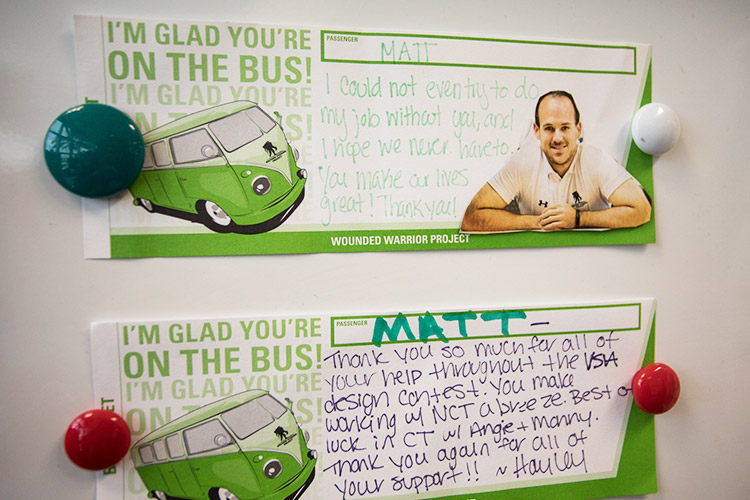 I'M GLAD YOU'RE
ON THE BUS!
I'M GLAD YOU'RE
PASSENGER
MATT
I could not even try to do
my job without you, and
I hope we never have to.
You make our lives
great! Thank you!
WOUNDED WARRIOR PROJECT
I'M GLAD YOU'RE
ON THE BUS!
I'M GLAD YOU'RE
PASSENGER
MATT –
Thank you so much for all of
your help throughout the VSA
design contest. You make
working w/ NCT a breeze. Best of
luck in CT w/ Angie + Manny.
Thank you again for all of
your support!! ~ Hayley